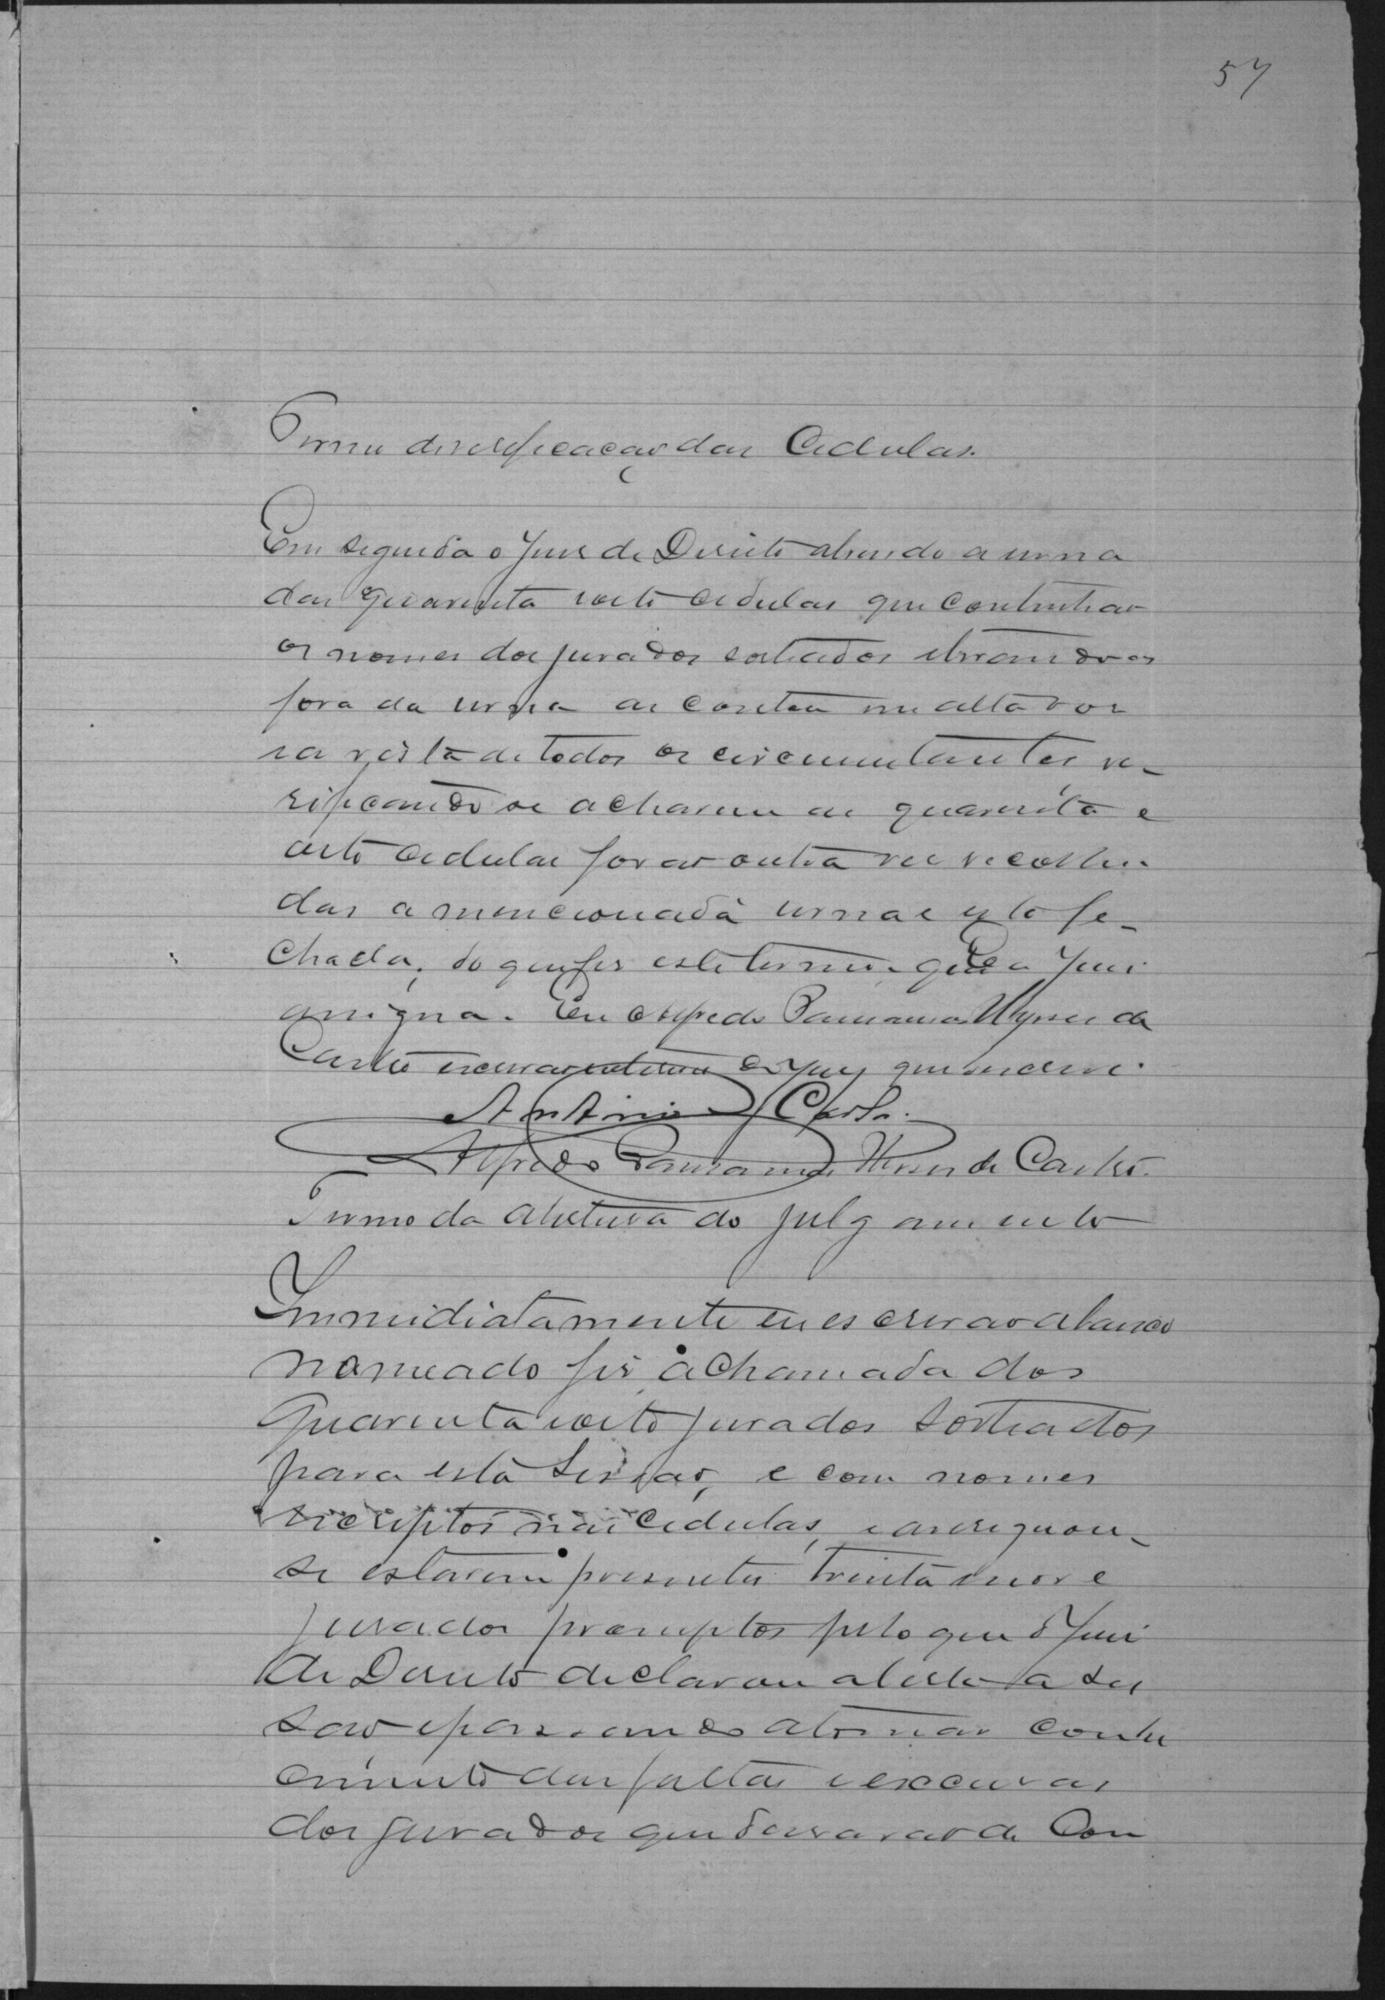 57
Termo de verificação das Cedulas.
Em seguida o Juiz de Direito abrindo a urna
das quarenta e oito cedulas que continhão
os nomes dos jurados sorteados e tirando as
fora da urna as contou em alta voz
e a vista de todos os circumstantes ve-
rificando se acharem as quarenta e
oito cedulas forão outra vez recolhi
das a mencionada urna e esta fe-
chada, do que fiz este termo que o Juiz
assigna. Eu Alfredo Ulysses de
Castro escrevente o escrevi.
Antonio J Costa.
Alfredo Ulysses de Castro.
Termo da abertura do julgamento
Immidiatamente eu escrivão abaixo
nomeado fiz a chamada dos
quarenta e oito jurados sorteados
para esta sessão, e com nomes
escriptos nas cedulas, e averiguou-
se estarem presentes trinta e nove
jurados promptos pelo que o Juiz
de Direito declarou aberta a ses
são e passando a tomar conhe
cimento das faltas e excusas
dos jurados que deixarão de Com